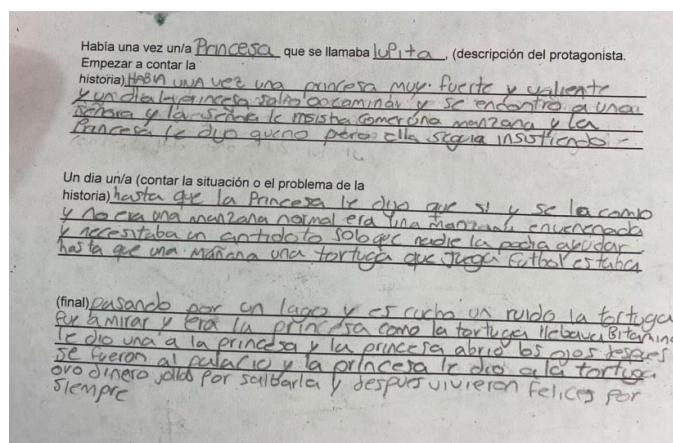 Había una vez un/a Princesa que se llamaba lupita, (descripción del protagonista.
Empezar a contar la
historia) HaBiN UNA VEZ una princesa muy fuerte y valiente
y un dia la princesa salio a caminar y se encontro a una
señora y la señora le insistia comer una manzana y la
Princesa le dijo que no pero ella seguia insistiendo
Un dia un/a (contar la situación o el problema de la
historia) hasta que la Princesa le dijo que si y se la comio
y no era una manzana normal era una manzana envenenada
y necesitaba un antidoto solo que nadie la podia ayudar
hasta que una mañana una tortuga que juega futbol estaba
(final) pasando por un lago y escucho un ruido la tortuga
fue a mirar y era la princesa como la tortuga llebava Bitamina
le dio una a la princesa y la princesa abrio los ojos despues
se fueron al palacio y la princesa le dio a la tortuga
oro dinero por salbarla y despues vivieron felices por
siempre